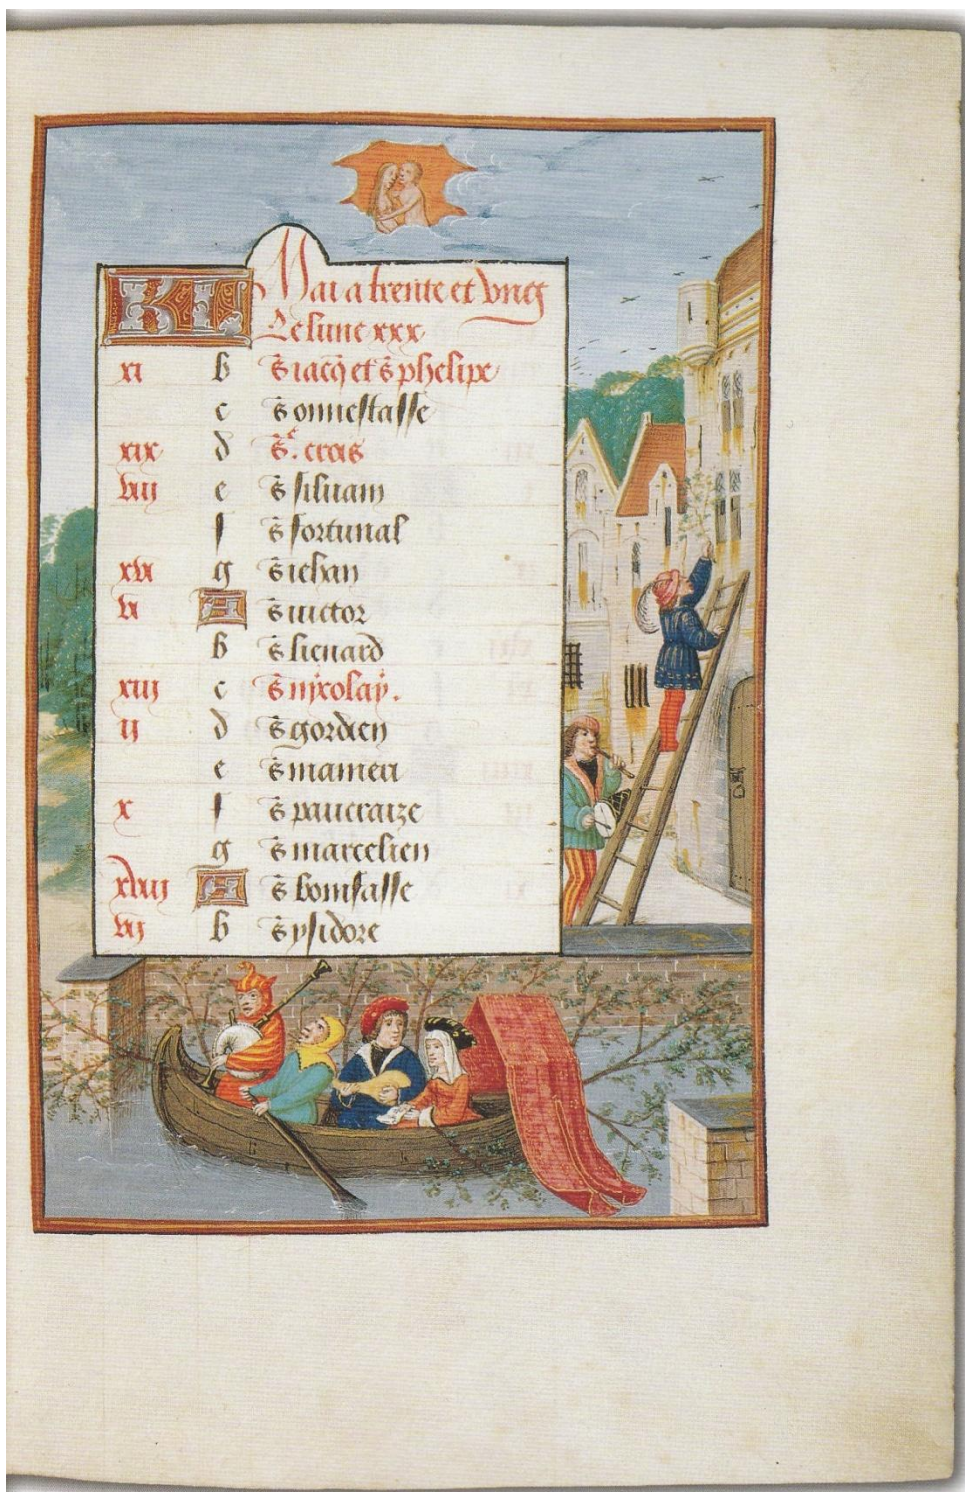 KL Mai a trente et ung
Le lune xxx
xi b S iacq̄ et S phelipe
c S onnestasse
xix d Sᵉ. crois
viij e S siluain
f S fortunaf
xvi g S iehan
vi A S victor
b S lienard
xiij c S nycolay.
ij d S gordien
e S mamert
x f S pancraize
g S marcelien
xviij A S bonifasse
vij b S ysidore